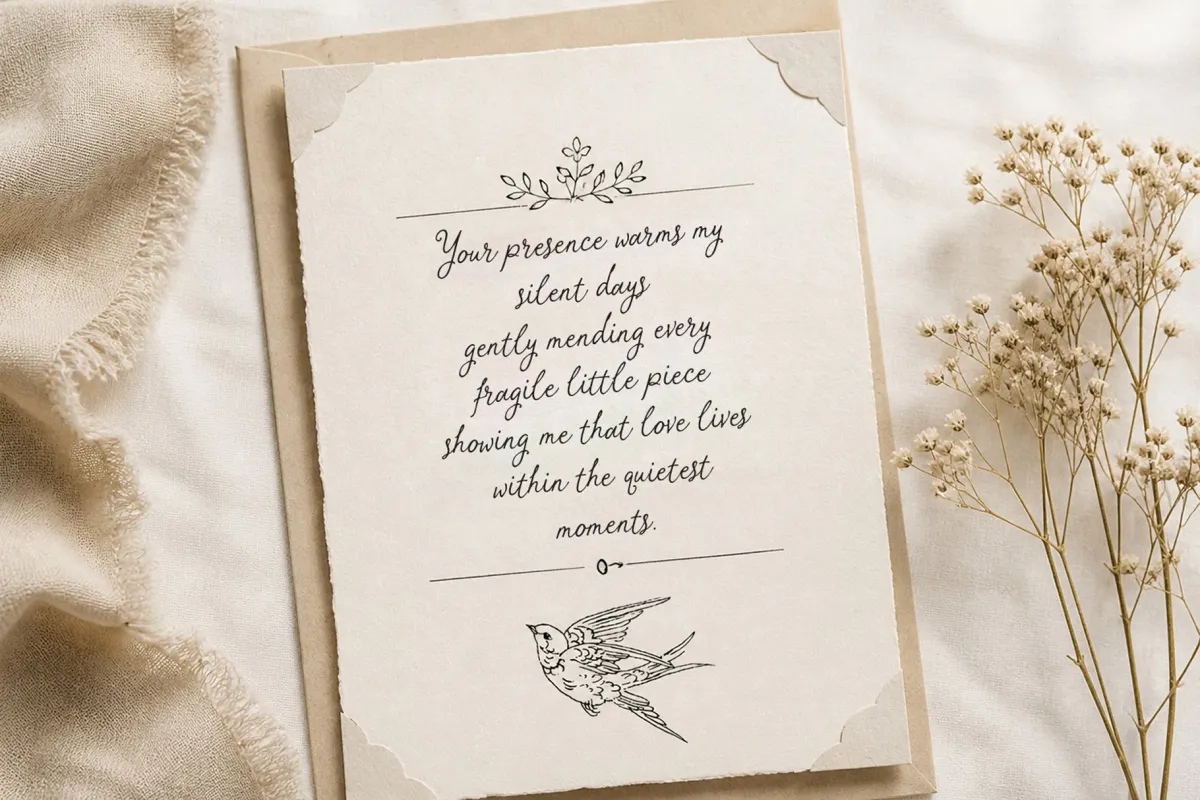 Your presence warms my
silent days
gently mending every
fragile little piece
showing me that love lives
within the quietest
moments.